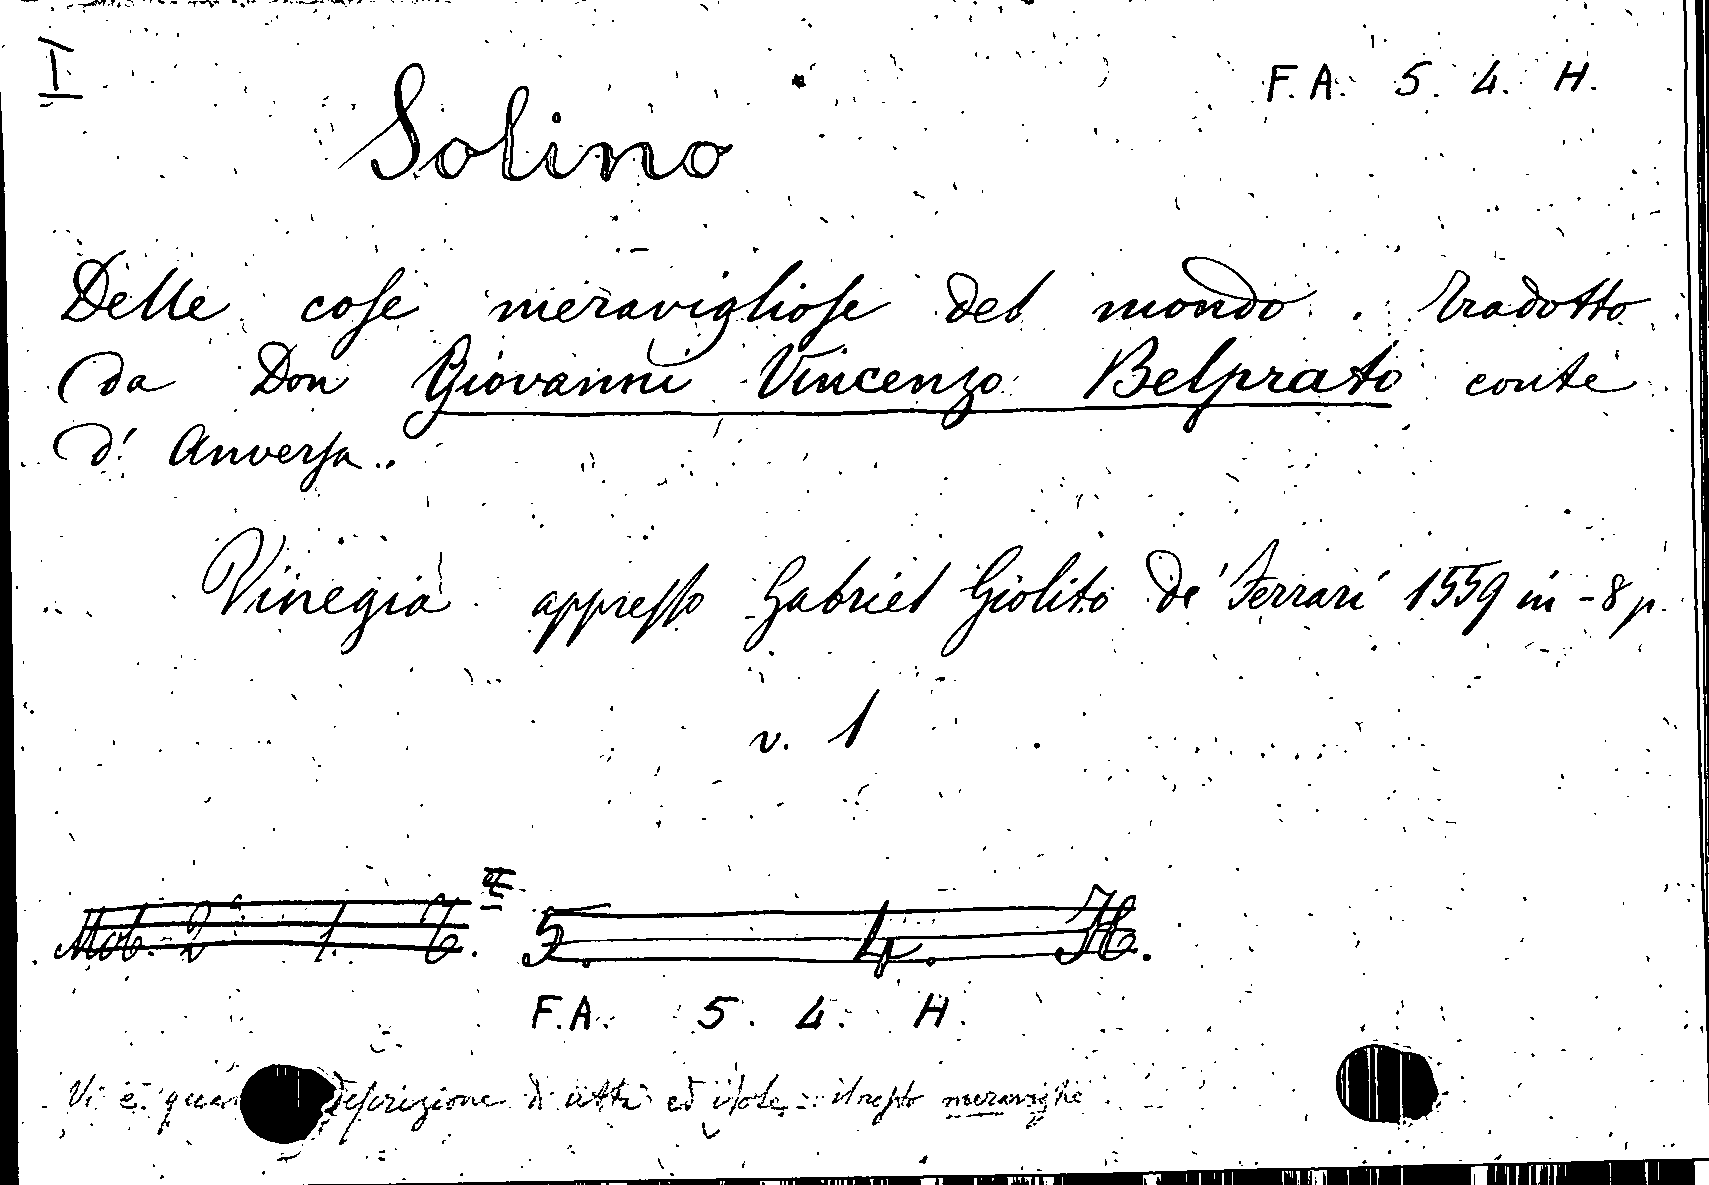 I
F. A. 5. 4. H.
Solino
Delle cose meravigliose del mondo. tradotto
da Don Giovanni Vincenzo Belprato conte
d'Anversa.
Vinegia appresso Gabriel Giolito de' Ferrari 1559 in-8 p.
v. 1
Mob. 2° 1. 5. 4. H.
F. A. 5. 4. H.
Vi è descrizione di città ed isole il resto meraviglie